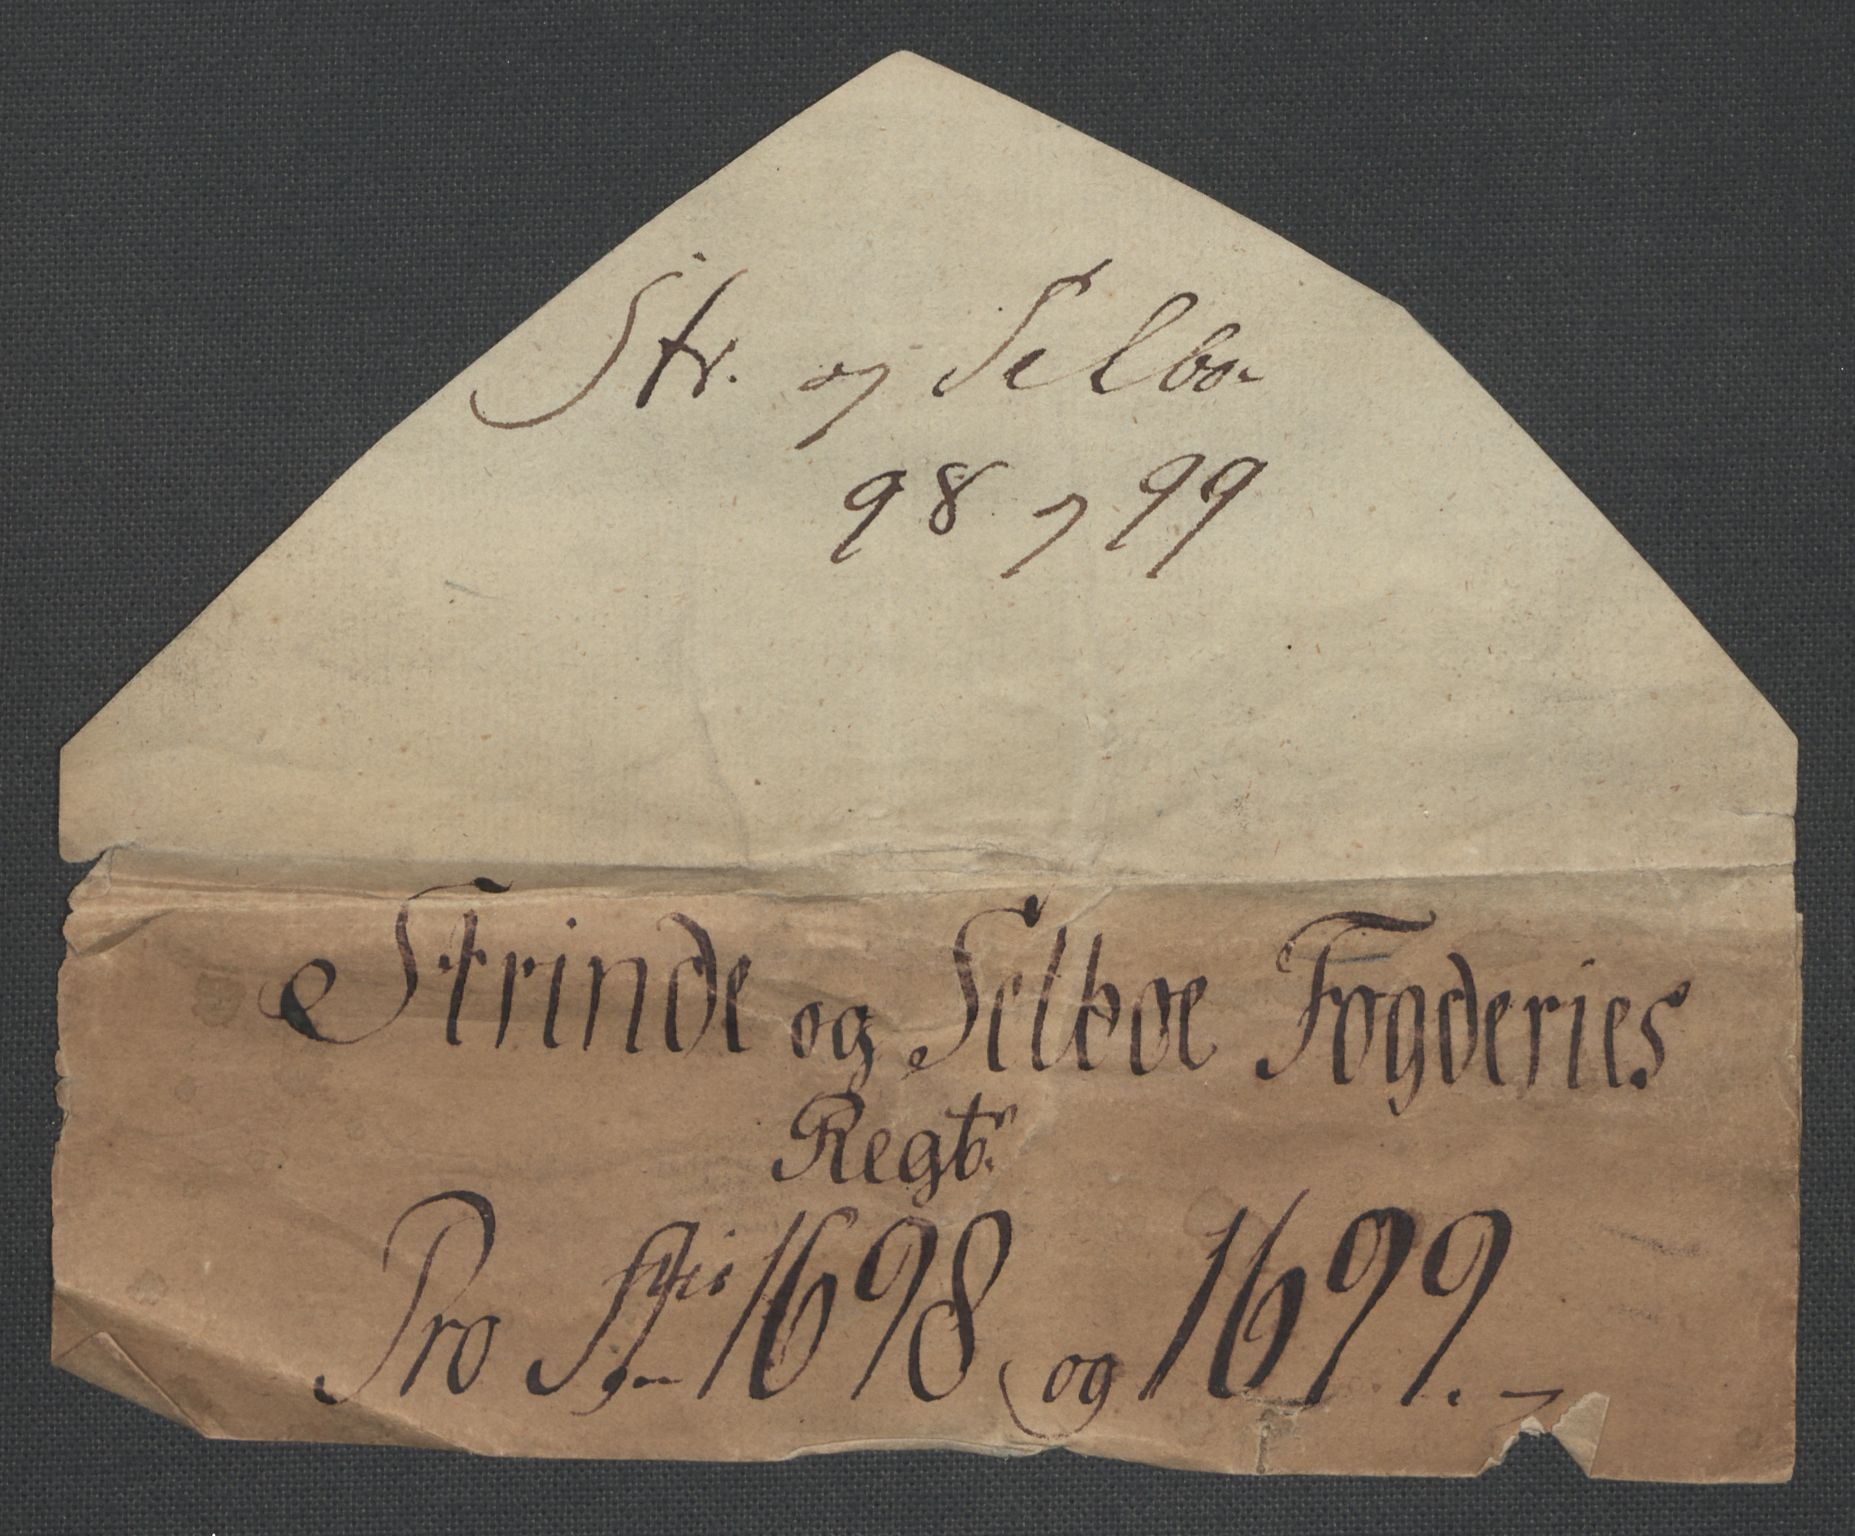 Str. og Selbo.
98 og 99
Strinde og Selboe Fogderies
Regb.
Pro 1698 og 1699.